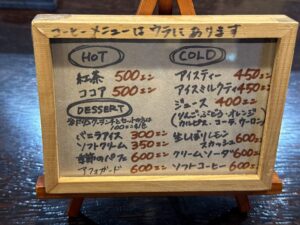 コーヒーメニューはウラにあります
HOT
紅茶 500エン
ココア 500エン
DESSERT
100エン引
バニラアイス 300エン
ソフトクリーム 350エン
季節のパフェ 600エン
アフォガード 600エン
COLD
アイスティー 450エン
アイスミルクティ 450エン
ジュース 400エン
(りんご・ぶどう・オレンジ
カルピス・コーラ・ウーロン)
生しぼりレモン
スカッシュ 600エン
クリームソーダ 600エン
ソフトコーヒー 600エン